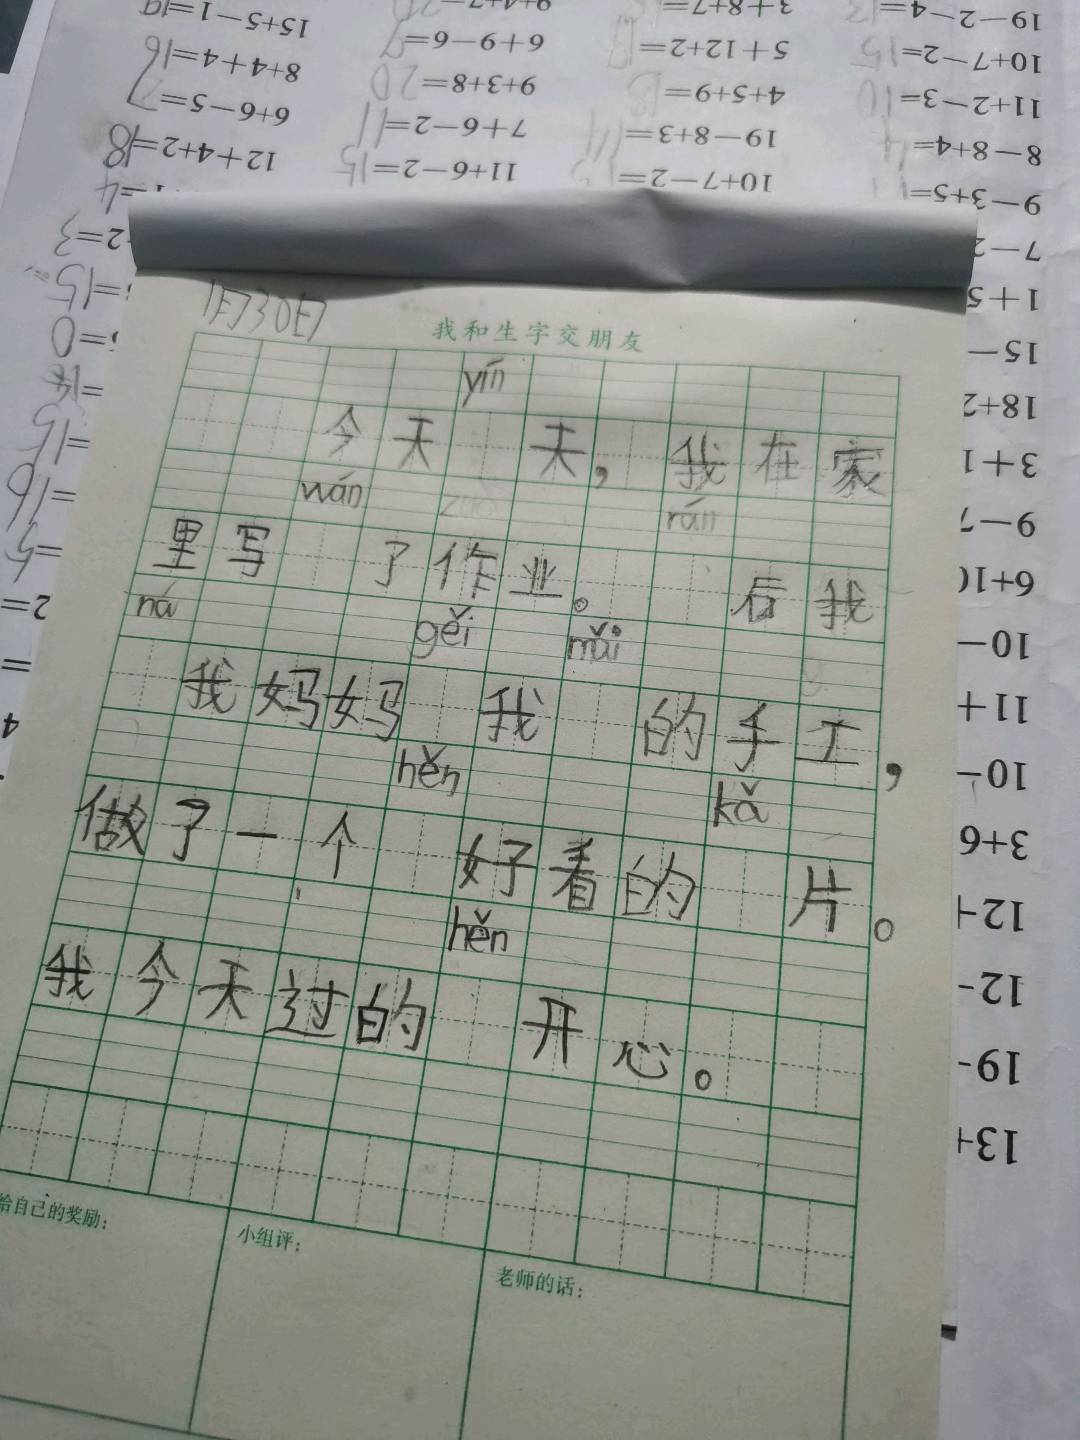 15+5−1=19
9+4+7=20
3+8+7=
19−2−4=13
8+4+4=16
6+9−6=9
5+12+2=
10+7−2=15
6+6−5=7
9+3+8=20
4+5+9=18
11+2−3=10
12+4+2=18
7+6−2=11
19−8+3=14
8−8+4=4
11+6−2=15
10+7−2=
9−3+5=11
=4
2=3
=15
=0
=14
=15
=16
=5
2=
=
4
7−2
1+5
15−
18+2
3+1
9−7
6+1
10−
11+
10−
3+6
12+
12-
19-
13+
1月30日
我和生字交朋友
yín
今天 天，我在家
wán zuò rán
里写 了作业。 后我
ná gěi mǎi
我妈妈 我 的手工，
hěn kǎ
做了一个 好看的 片。
hěn
我今天过的 开心。
给自己的奖励：
小组评：
老师的话：